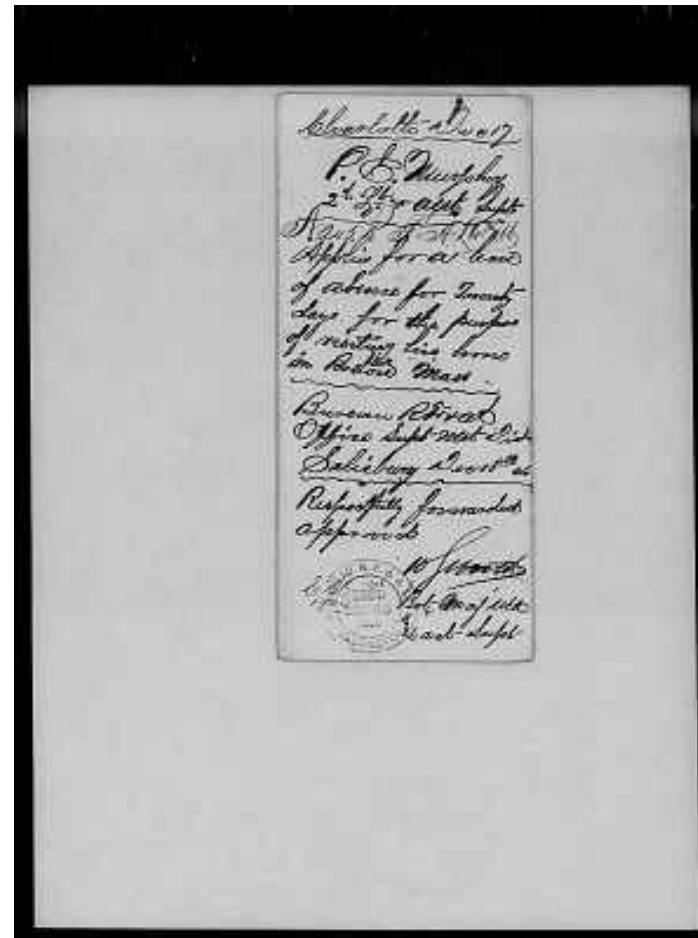 Charlotte Dec 17
P. E. Murphy
2d Lt & asst Supt
Applies for a leave
of absence for Twenty
days for the purpose
of visiting his home
in Mass.
Bureau R F &c
Office Supt West Dist
Salisbury Dec 18th
Respectfully forwarded
approved
Bvt Maj USA
& act Supt